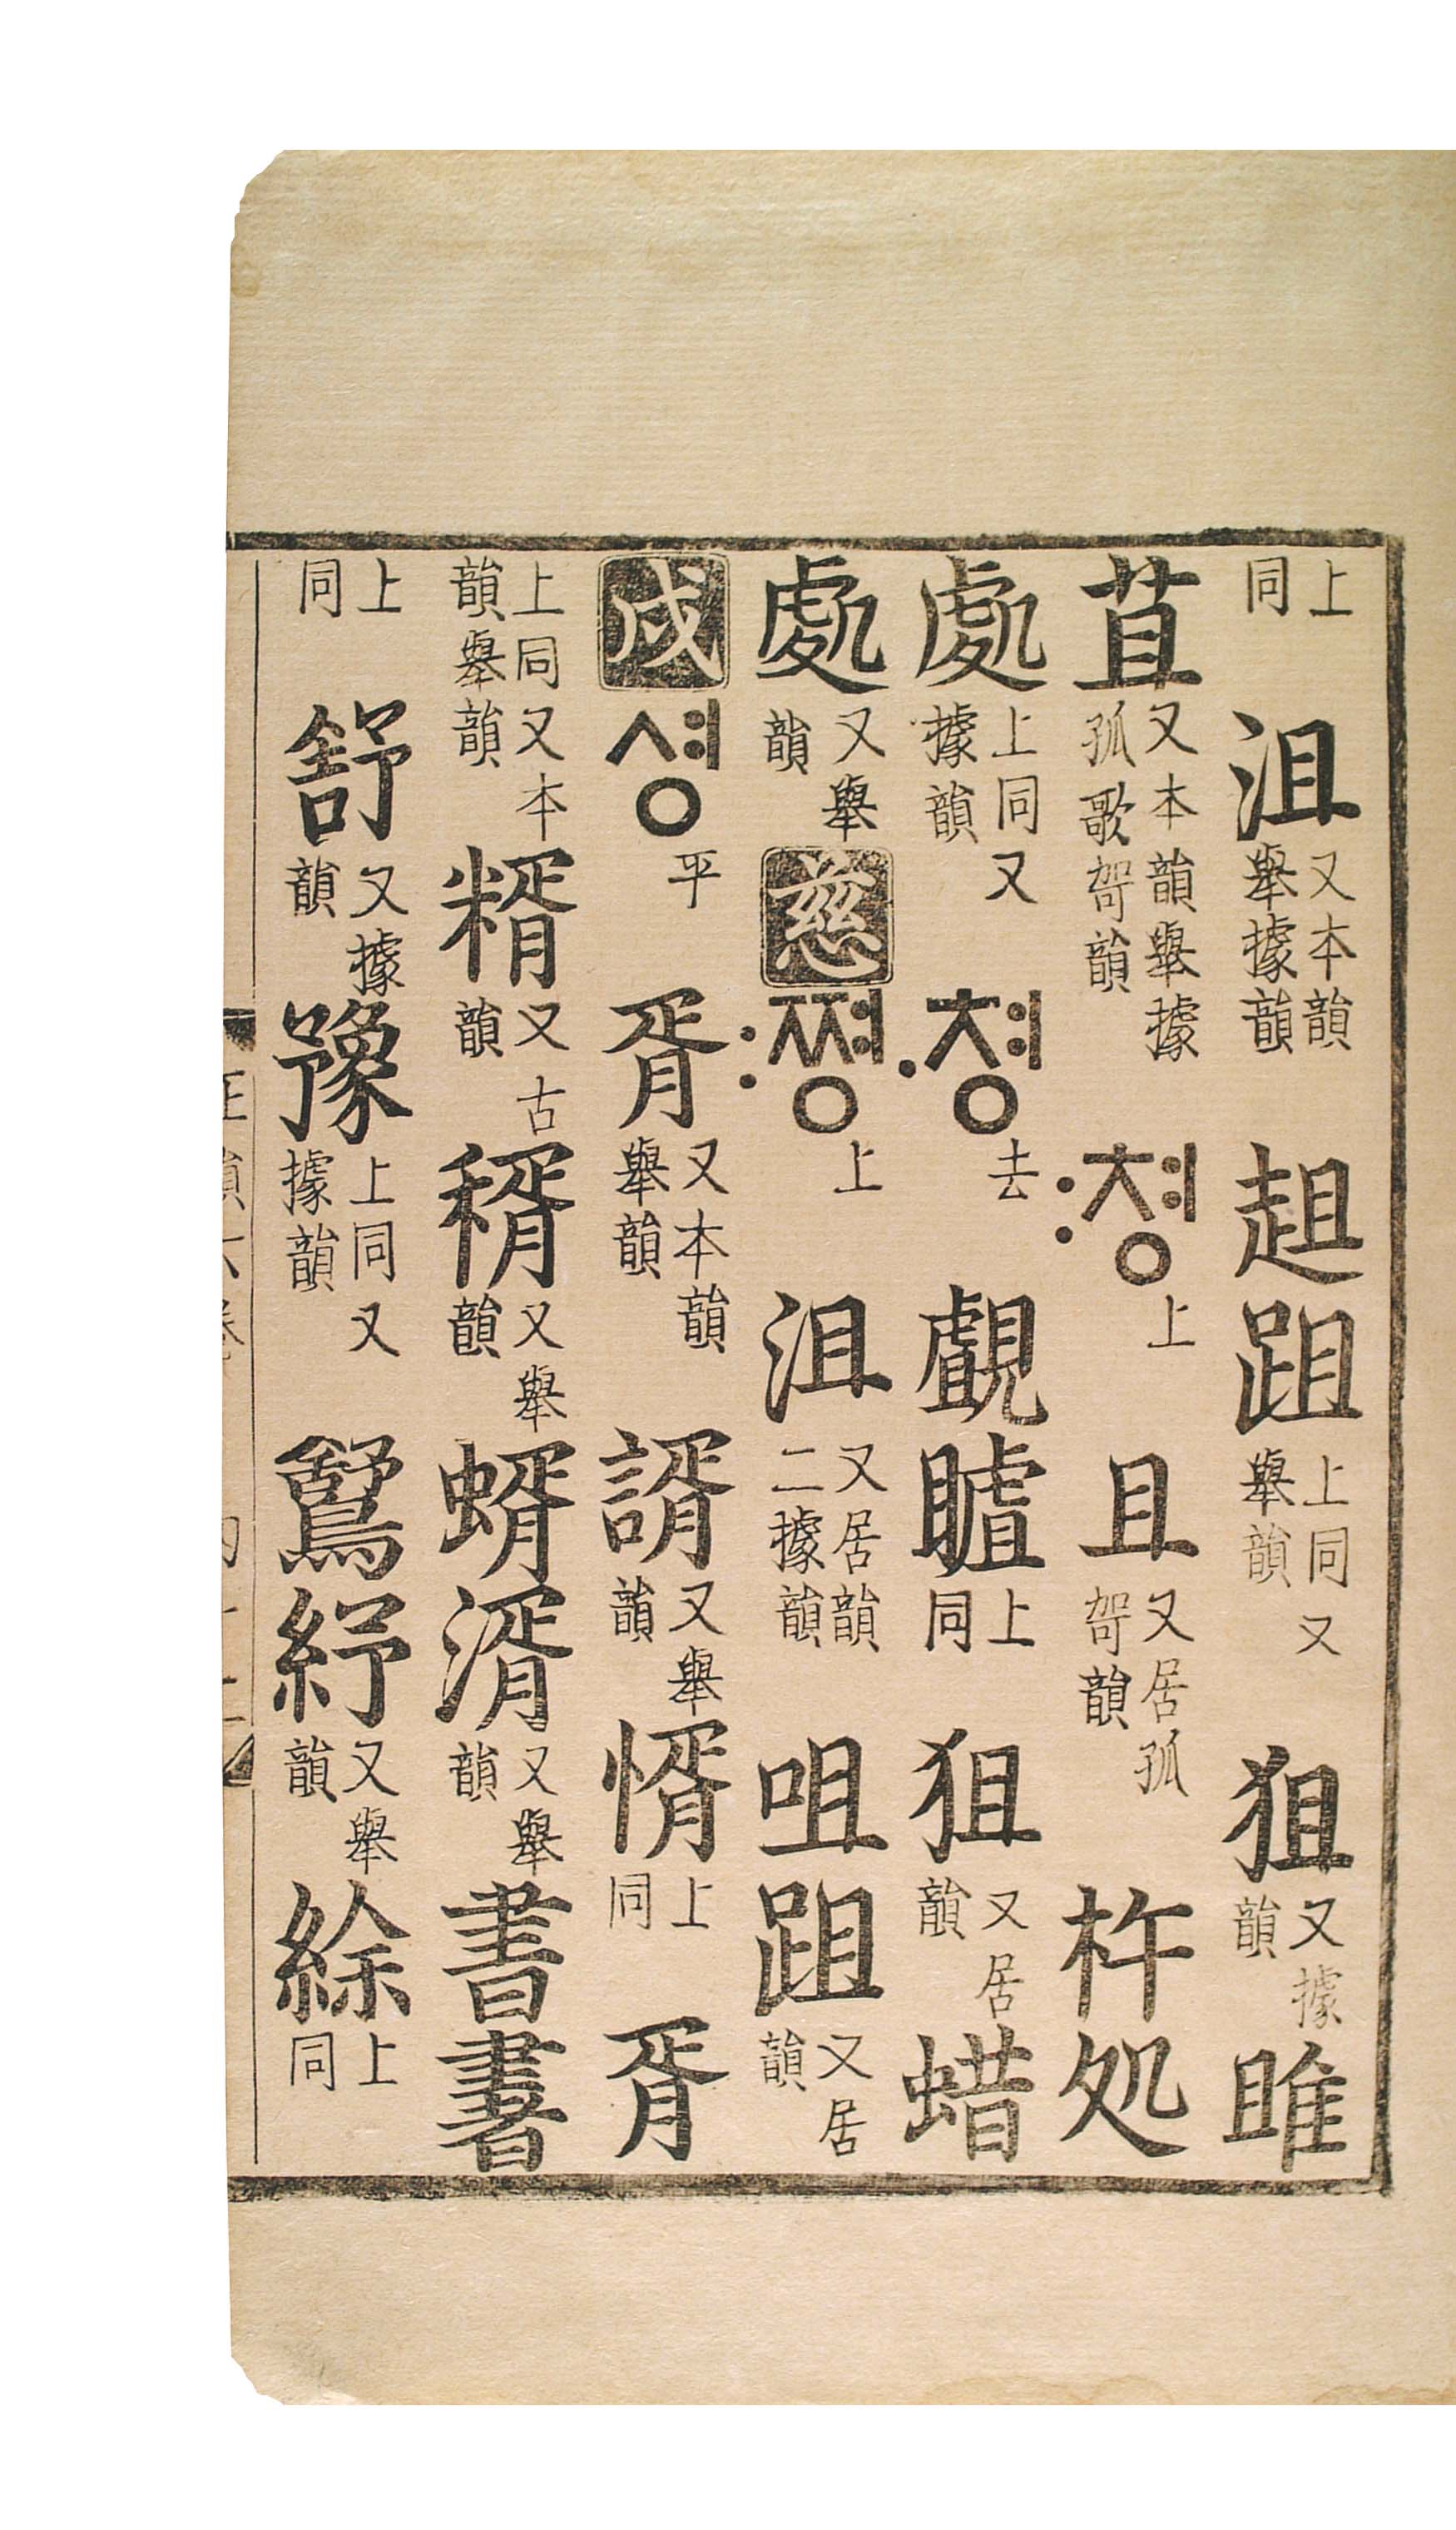 上同 沮 又本韻擧據韻 趄 跙 上同又擧韻 狙 又據韻 雎
苴 又本韻擧據孤歌哿韻 :쳥 上 且 又居孤哿韻 杵 処
處 上同又據韻 ·쳥 去 覰 䁦 上同 狙 又居韻 蜡
處 又擧韻 慈 :쪙 上 沮 又居韻二據韻 咀 跙 又居韻
戌 셩 平 胥 又本韻擧韻 諝 又擧韻 㥠 上同 胥
上同又本韻擧韻 糈 又古韻 稰 又擧韻 蝑 湑 又擧韻 書 𦘠
上同 舒 又據韻 豫 上同又據韻 紓 又擧韻 䋡 上同